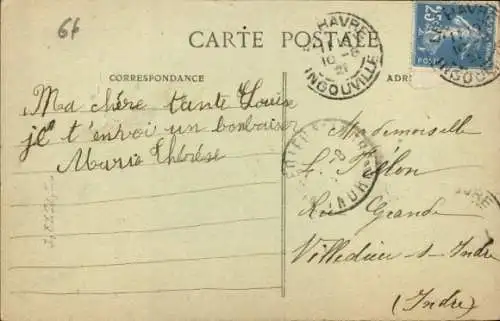 66
CARTE POSTALE
LE HAVRE
10 - 8
21
INGOUVILLE
25c
CORRESPONDANCE
Ma chère tante Louise
je t'envoi un bonbaiser
Marie Thérèse
Mademoiselle
L. Pillon
Rue Grande
Villedieu s- Indre
(Indre)
INDRE